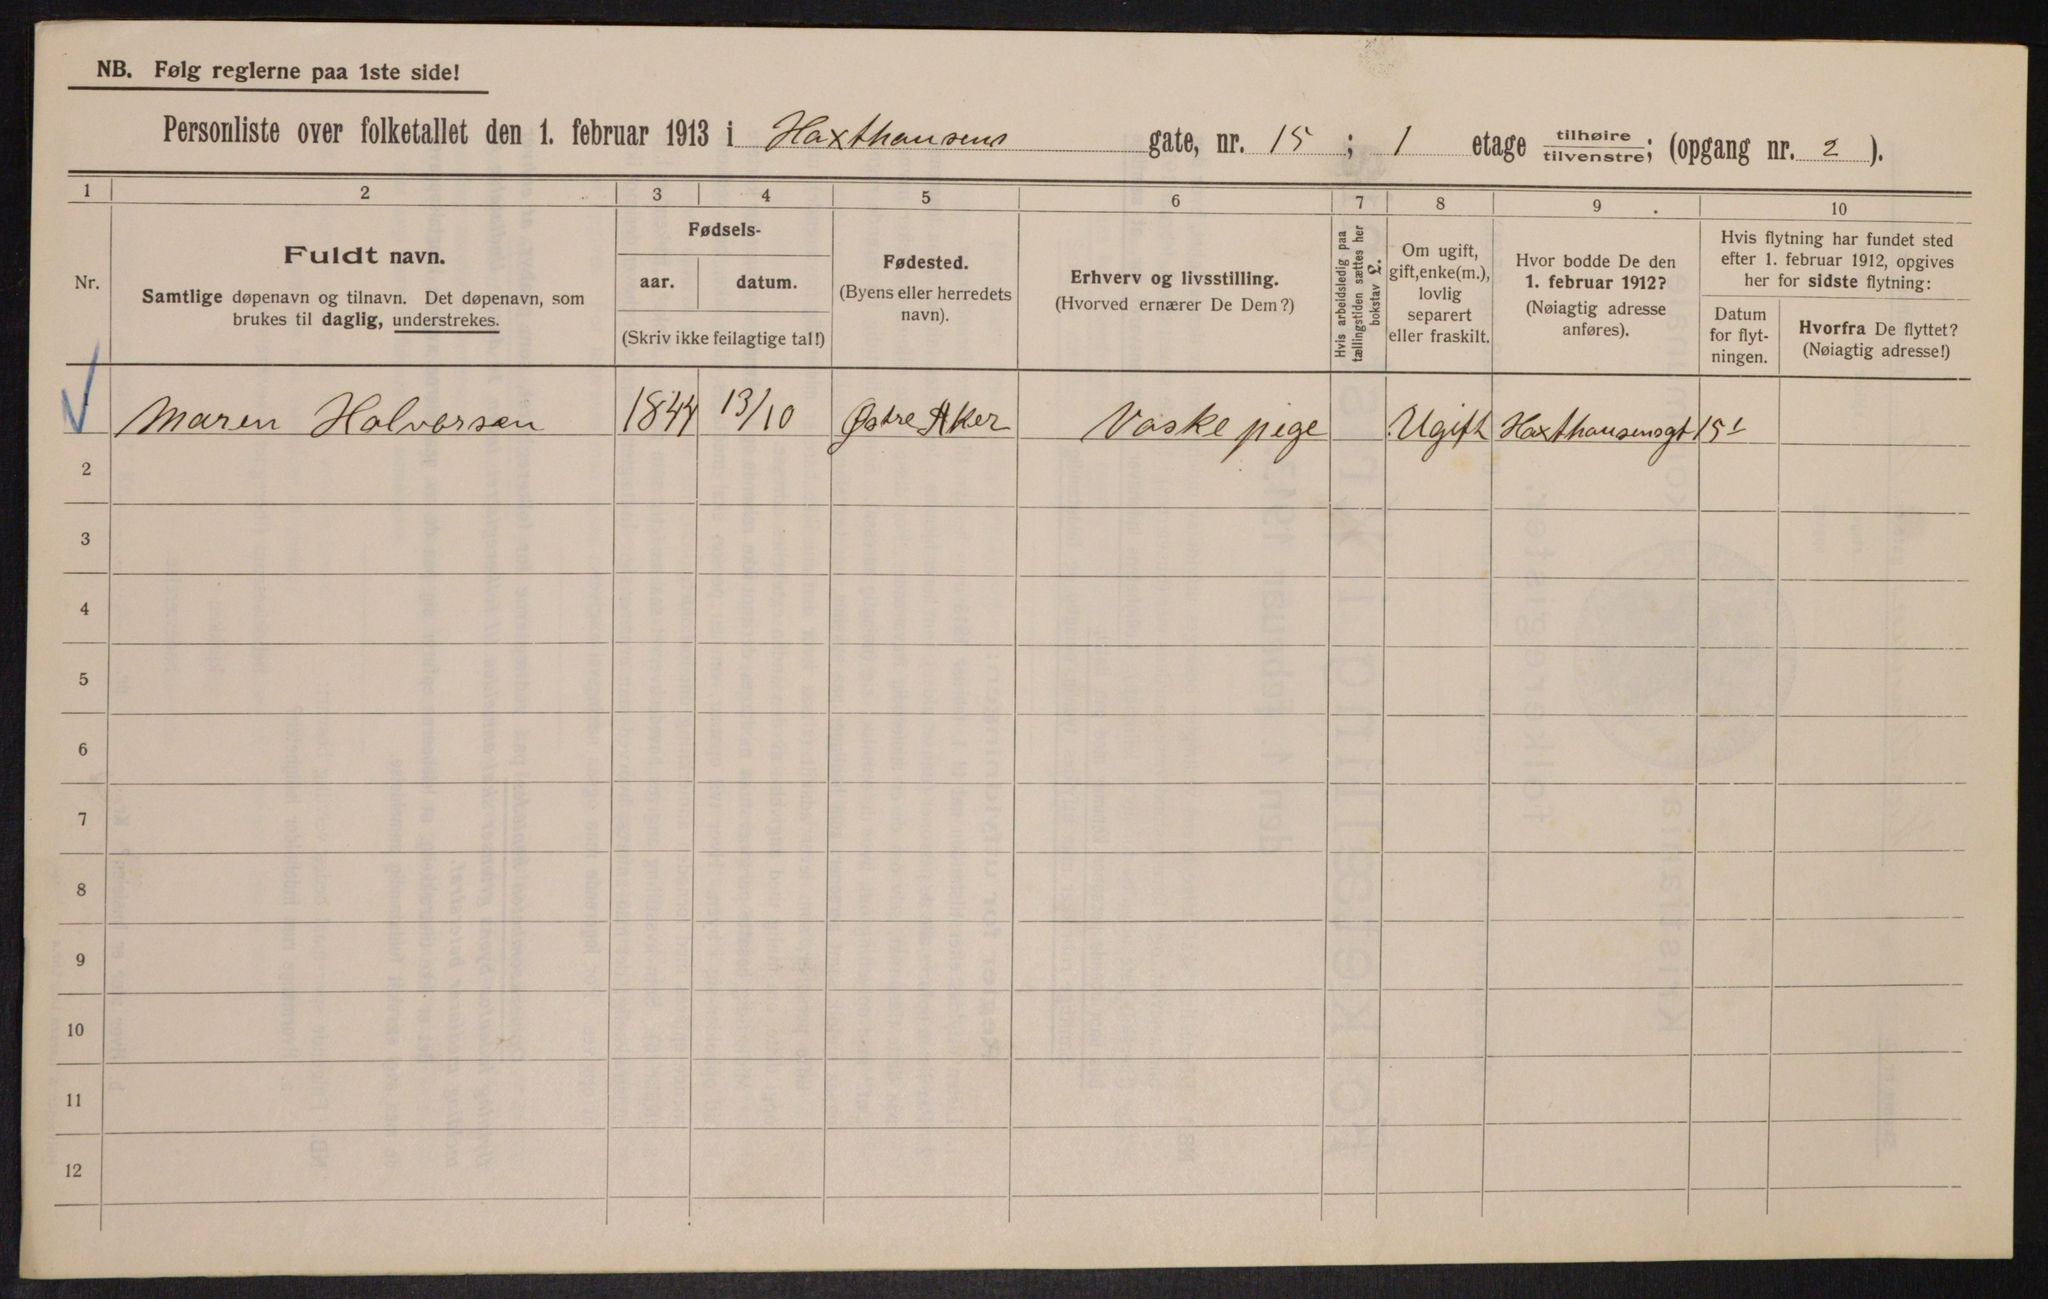 NB. Følg reglerne paa 1ste side!
Personliste over folketallet den 1. februar 1913 i Haxthausens gate, nr. 15 ; 1 etage tilhøire tilvenstre; (opgang nr. 2 ).
1 2 3 4 5 6 7 8 9 10
Nr.
Fuldt navn.
Samtlige døpenavn og tilnavn. Det døpenavn, som
brukes til daglig, understrekes.
Fødsels-
aar. datum.
(Skriv ikke feilagtige tal!)
Fødested.
(Byens eller herredets
navn).
Erhverv og livsstilling.
(Hvorved ernærer De Dem?)
Hvis arbeidsledig paa
tællingstiden sættes her
bokstav L.
Om ugift,
gift, enke(m.),
lovlig
separert
eller fraskilt.
Hvor bodde De den
1. februar 1912?
(Nøiagtig adresse
anføres).
Hvis flytning har fundet sted
efter 1. februar 1912, opgives
her for sidste flytning:
Datum
for flyt-
ningen.
Hvorfra De flyttet?
(Nøiagtig adresse!)
Maren Halvorsen 1844 13/10 Østre Aker Vaskepige Ugift Haxthausensgt 15 1
2
3
4
5
6
7
8
9
10
11
12